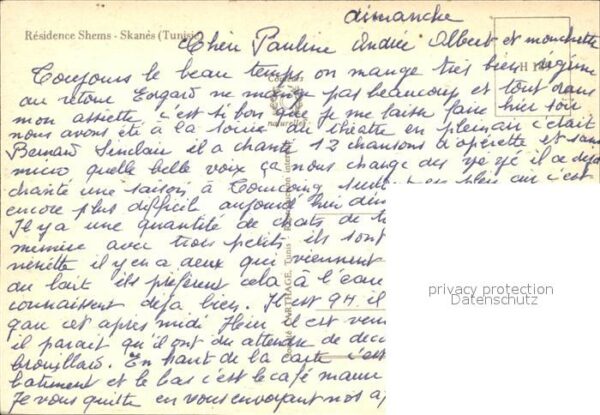 dimanche
Résidence Shems - Skanès (Tunisie)
Chère Pauline Andrée Albert et mouchette
Toujours le beau temps on mange très bien, régime
au retour Edgard ne mange pas beaucoup et tout dans
mon assiette, c'est si bon que je me laisse faire hier soir
nous avons été à la soirée au théâtre en plein air c'était
Bernard Sinclair il a chanté 12 chansons d'opérette et sans
micro quelle belle voix ça nous change des yé yé il a déjà
chanté une saison à Tourcoing plein air c'est
encore plus difficile aujourd'hui dim
Il y a une quantité de chats de t
memère avec trois petits ils sont
il y en a deux qui viennent
du lait ils préfèrent cela à l'eau
connaissent déjà bien. Il est 9H il
et après midi Hier il est venu
il parait qu'il ont du attendre de déco
brouillard. En haut de la carte c'est
batiment et le bas c'est le café maure
Je vous quitte en vous envoyant nos a
CARTHAGE, Tunis
privacy protection
Datenschutz